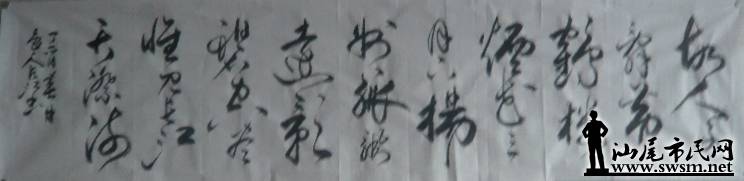 故人西
辞黄
鹤楼
煙花三
月下揚
州孤帆
遠影
碧空尽
惟见长江
天際流
汕尾市民网
www.swsm.net